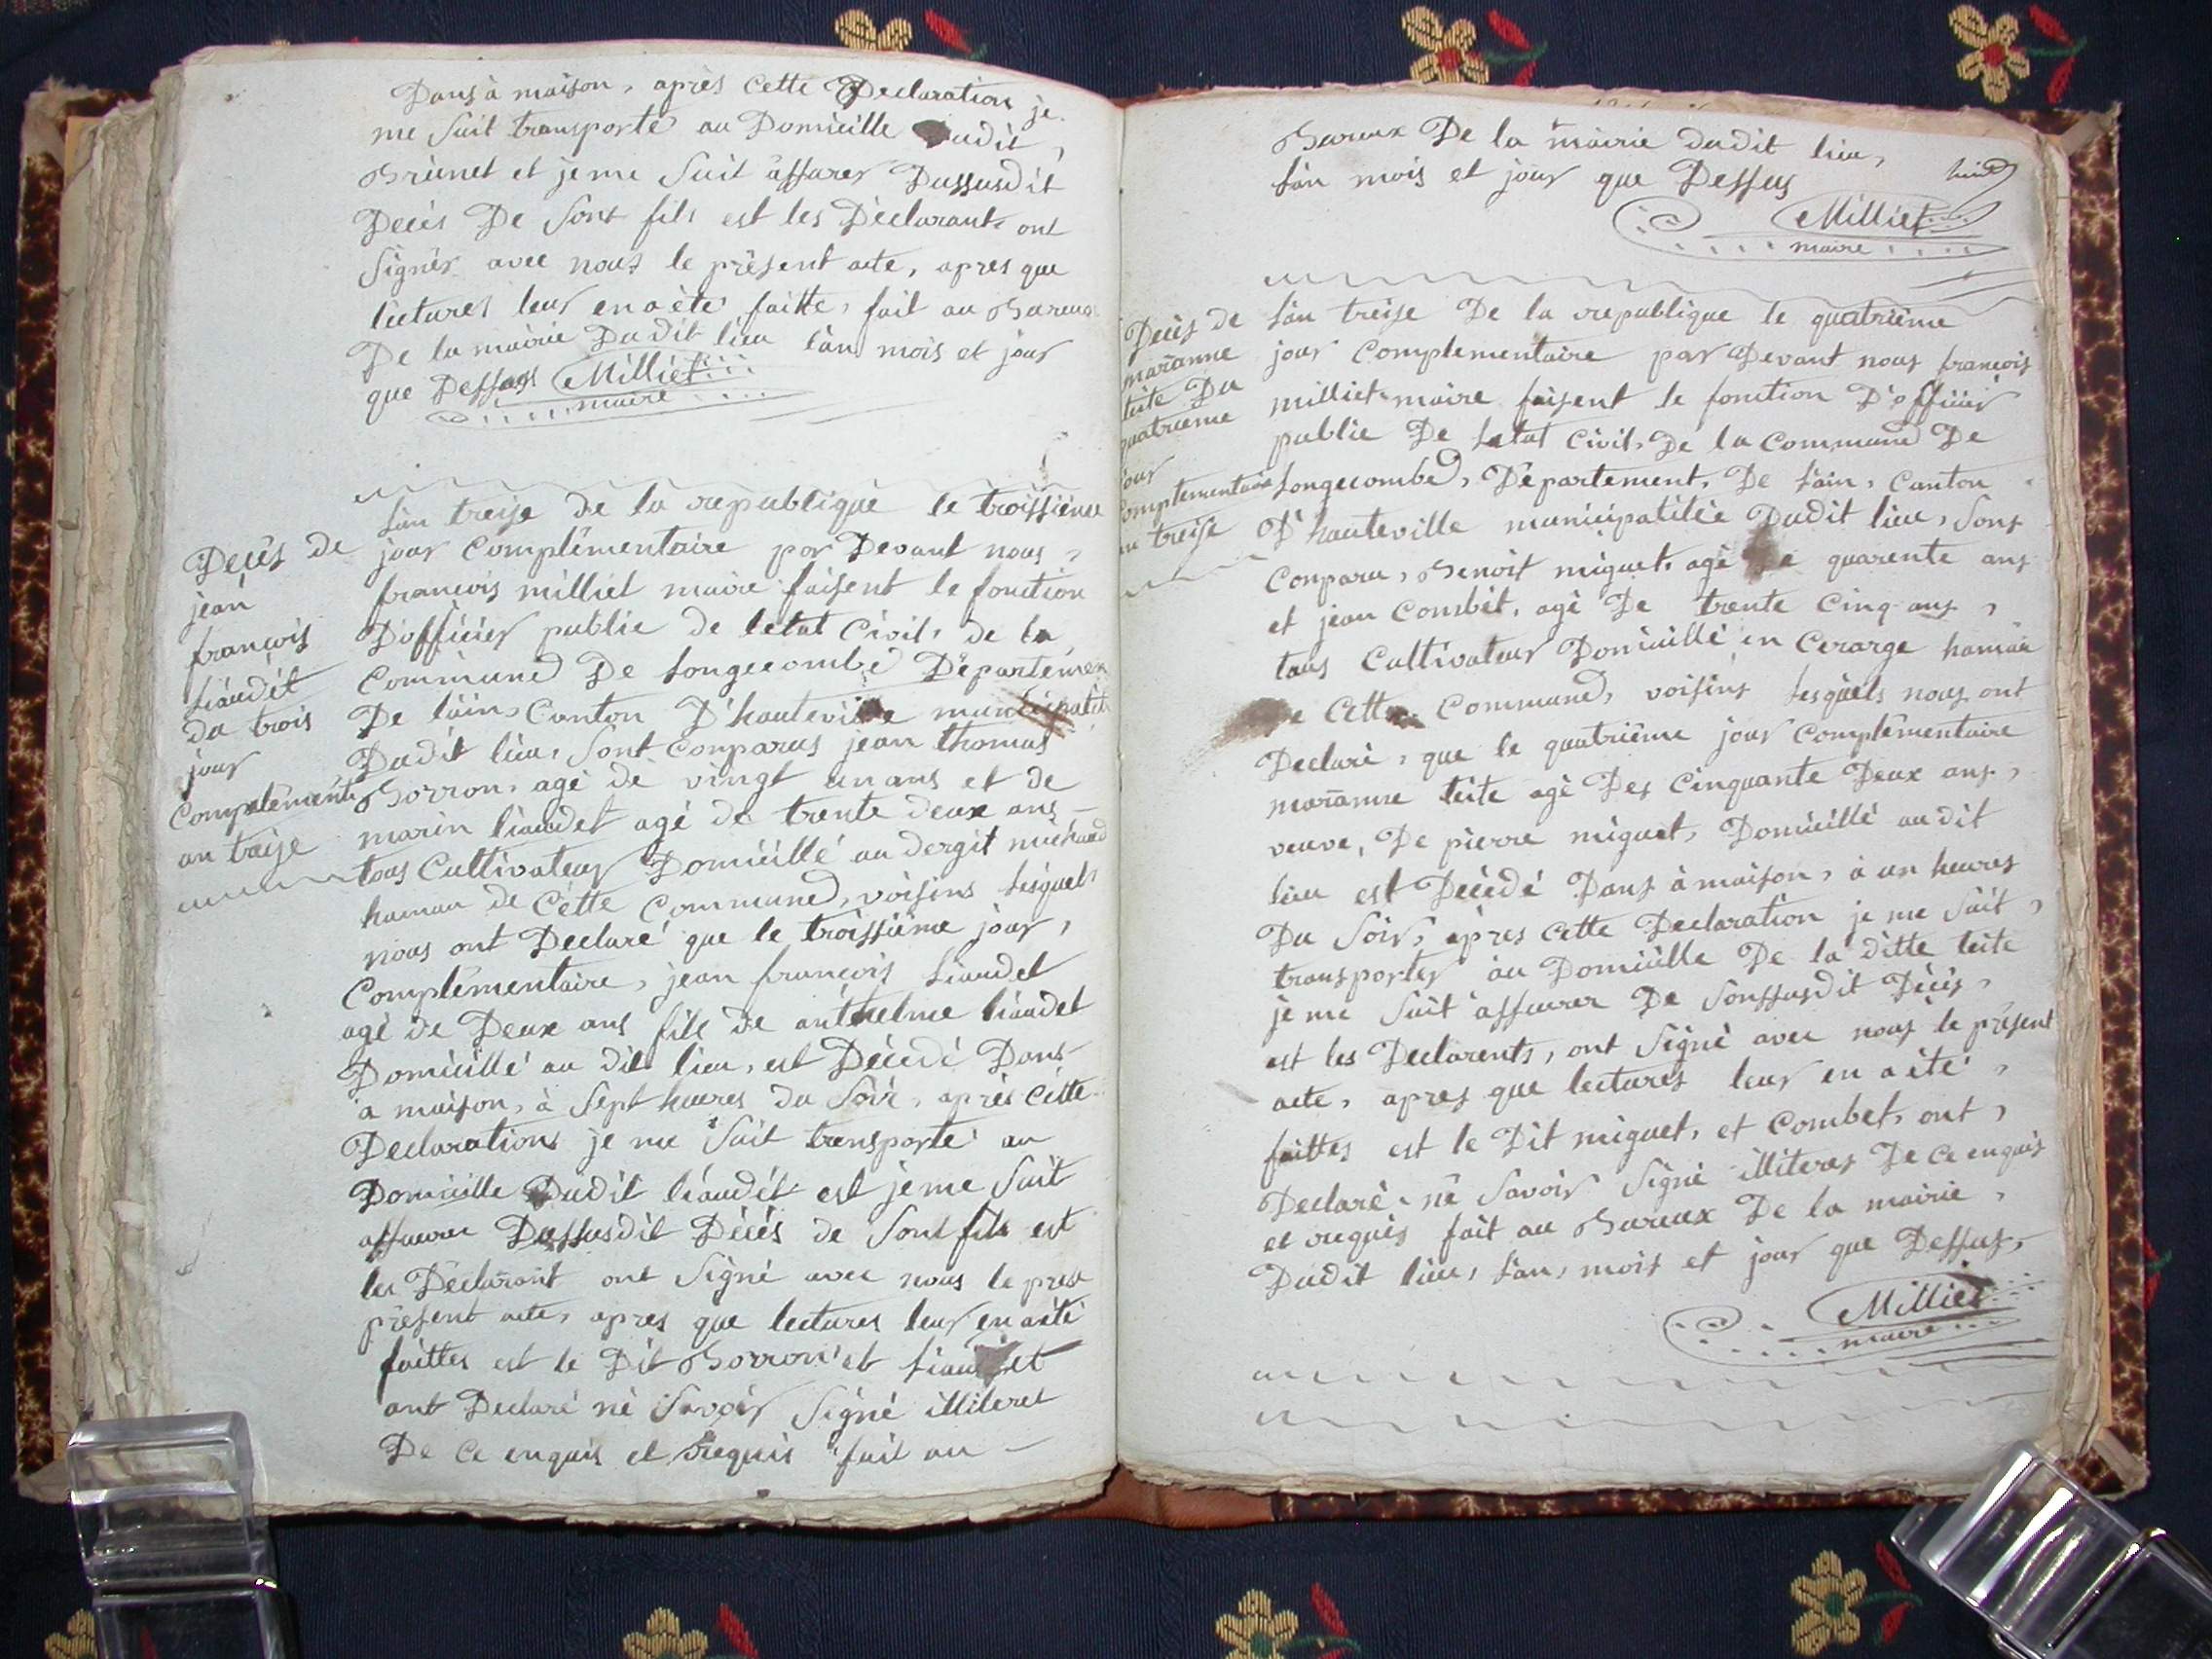 Dans à maison, après Cette Declaration je
me suit transporté au Domicille dudit,
Brunet et je me suit assurer Dussusdit
Decès De sont fils est les Déclarants ont
Signés avec nous le présent acte, apres que
lectures leur en a été faitte, fait au Bureau
De la mairie Dudit lieu l'an mois et jour
que Dessus Milliet
maire
Decès de
jean
françois
liaudét
du trois
jour
Complémente
an treise
L'an treise de la republique le troissième
jour Complémentaire par Devant nous,
francois milliet maire faisent le fonction
D'officier public de letat Civil, de la
Commune De Longecombe Département
De l'ain, Canton D'hauteville municipalité
Dudit lieu, sont conparus jean thomas
Borron, agé de vingt un ans et de
marin liaudet agé de trente deux ans
tous Cultivateur Domicillé au dergit michaud
hamau de Cétte Commune, voisins lesquels
nous ont Declaré que le troissième jour,
Complémentaire, jean françois Liaudet
agé de Deux ans fils de anthelme liaudet
Domicillé au dit lieu, est Décedé Dans
a maison, à Sept heures du Soir, après Cétte
Declarations je me suit transporté au
Domicille Dudit liaudét est je me suit
assurer Dussusdit Décés de Sont fils est
les Déclarant ont Signé avec nous le prese
présent acte, apres que lectures leur en a été
faittes est le Dit Borron et Liaudet
ont Declaré né Savoir Signé illiteret
De Ce enquis et requis fait au
Bureaux De la mairie dudit lieu,
L'an mois et jour que Dessus
Milliet
maire
Decès de
marianne
teite Du
quatrieme
jour
Complementaire
an treise
L'an treise De la republique le quatrième
jour Complementaire par Devant nous francois
milliet maire faisent le fonction D'officier
public De Letat Civil, De la Commune De
Longecombe, Département, De L'ain, Canton
D'hauteville municipatilée Dudit lieu, Sont
Conparu, Benoit miguet, agé De quarente ans
et jean Combet, agé De trente Cinq ans,
tous Cultivateur Domicillé en Cerarge hamau
De Cette Commune, voisins Lesquels nous ont
Declaré, que le quatrième jour Complementaire
marianne teite agé Des Cinquante Deux ans,
veuve, De pierre miguet, Domicillé audit
lieu est Decédé Dans à maison, à un heures
Du Soir, àpres cette Declaration je me Suit,
transporter au Domicille De la ditte teite
je me Suit assurer De Sonssusdit Décés,
est les Declarents, ont Signé avec nous le présent
acte, apres que lectures leur en a été,
faittes est le Dit miguet, et Combet, ont,
Declaré, né Savoir Signé illiteres De Ce enquis
et requis fait au Bureaux De la mairie,
Dudit lieu, L'an, mois et jour que Dessus,
Milliet
maire